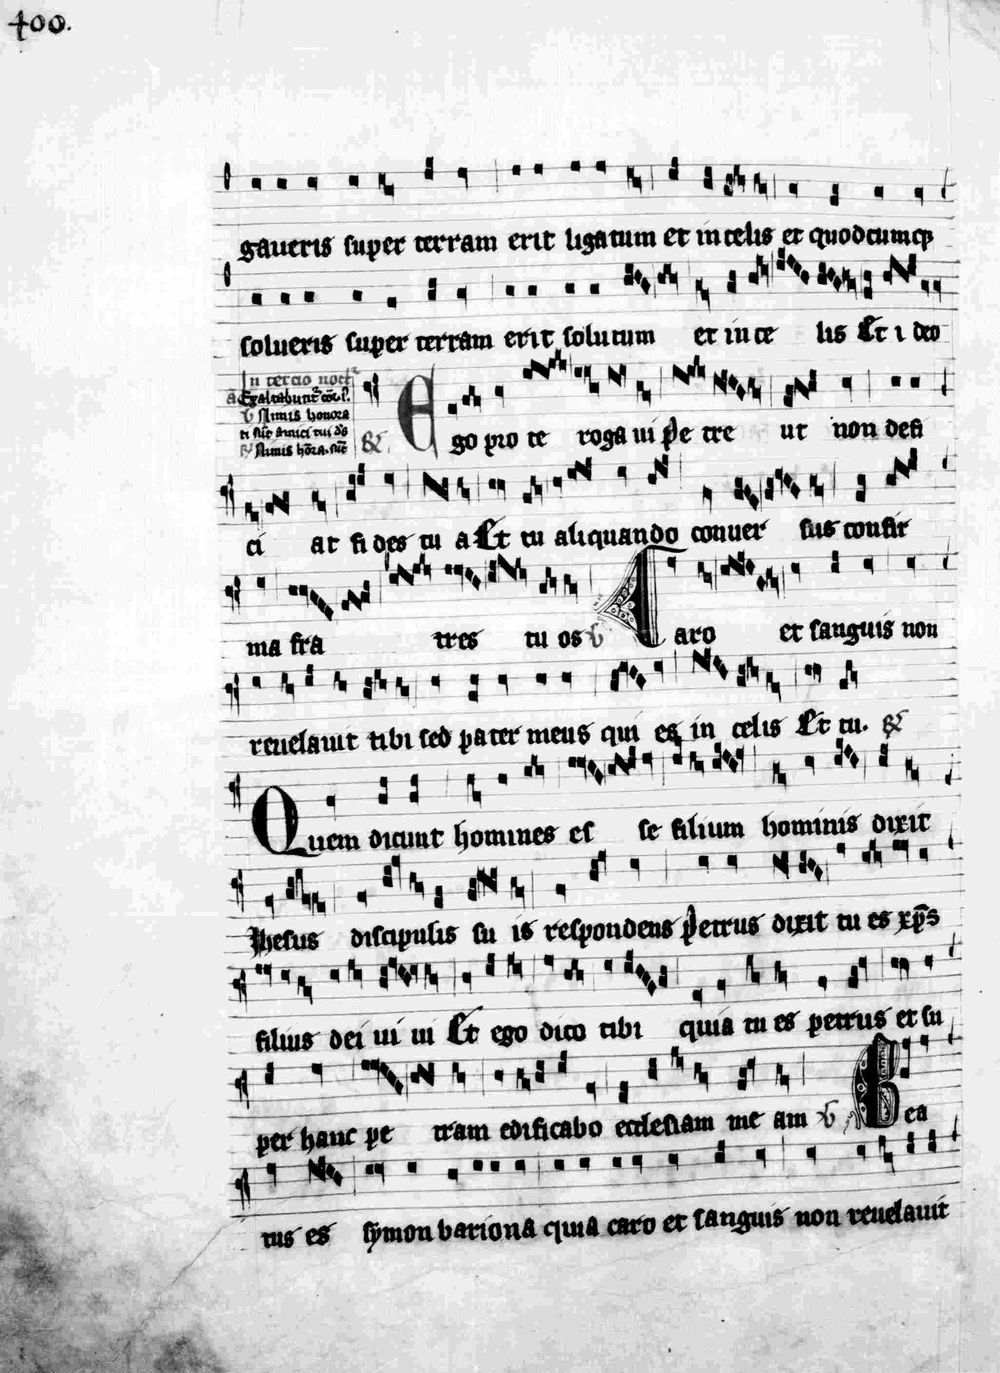 400.
gaueris super terram erit ligatum et in celis et quodcumqȝ
solueris super terram erit solutum et in ce lis Et i deo
In tercio noct
Exaltabunt
Nimis honora
ti sūt amici tui ds
Nimis
E go pro te roga ui pe tre ut non defi
ci at fi des tu a Et tu aliquando conuer sus confir
ma fra tres tu os ℣ Caro et sanguis non
reuelauit tibi sed pater meus qui es in celis Et tu. ℟
Quem dicunt homines es se filium hominis dixit
Jhesus discipulis su is respondens petrus dixit tu es xp̄s
filius dei ui ui Et ego dico tibi quia tu es petrus et su
per hanc pe tram edificabo ecclesiam me am ℣ Bea
tus es symon bariona quia caro et sanguis non reuelauit